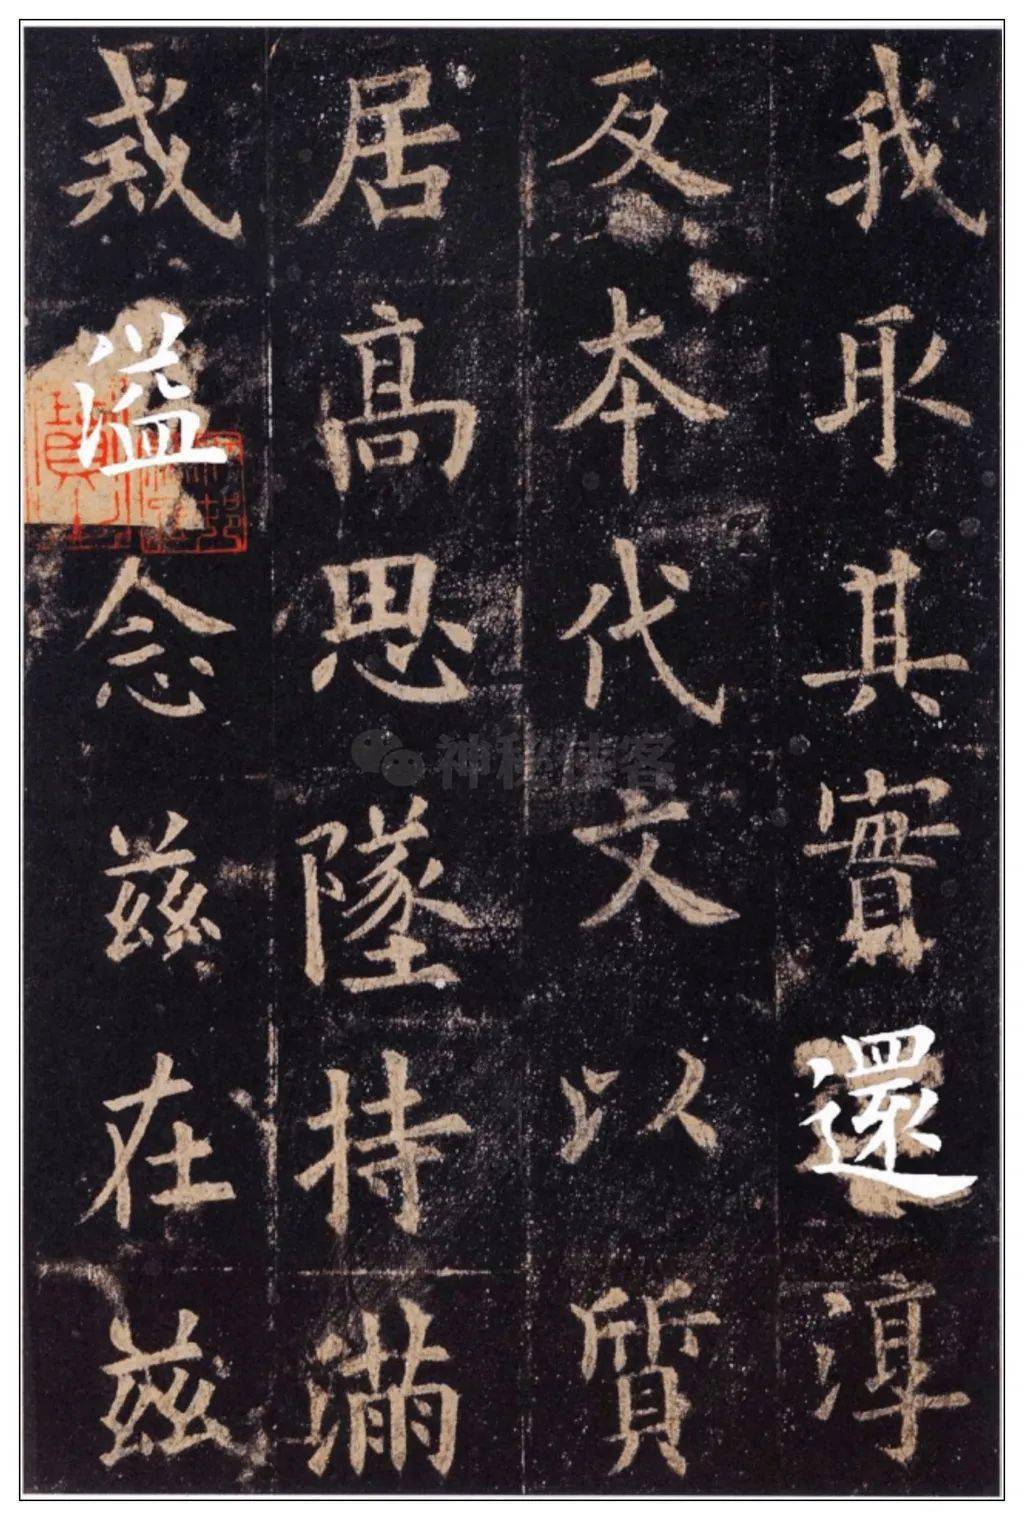 我取其實還淳
反本代文以質
居高思墜持滿
戒溢念茲在茲
神秘俠客